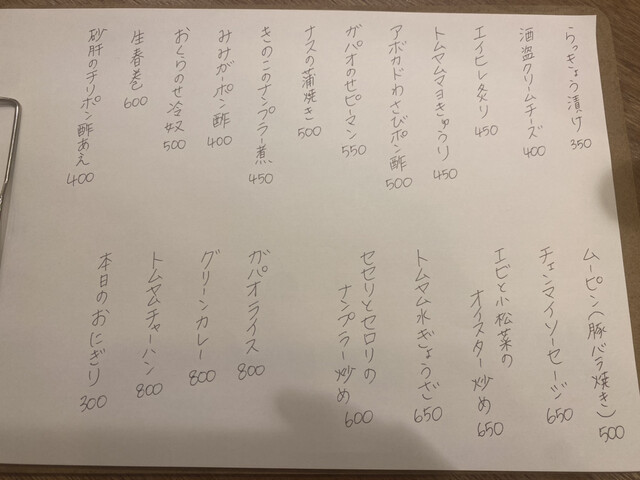 らっきょう漬け 350
酒盗クリームチーズ 400
エイヒレ炙り 450
トムヤムマヨきゅうり 450
アボカドわさびポン酢 500
ガパオのせピーマン 550
ナスの蒲焼き 500
きのこのナンプラー煮 450
みみがーポン酢 400
おくらのせ冷奴 500
生春巻 600
砂肝のチリポン酢あえ 400
ムーピン(豚バラ焼き) 500
チェンマイソーセージ 650
エビと小松菜の
オイスター炒め 650
トムヤム水ぎょうざ 650
セセリとセロリの
ナンプラー炒め 600
ガパオライス 800
グリーンカレー 800
トムヤムチャーハン 800
本日のおにぎり 300